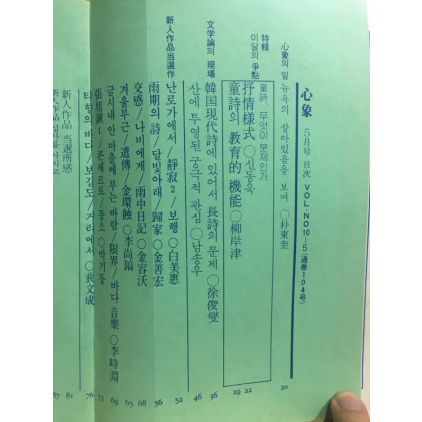 心象 5月号 目次 VOL.NO10-5 (通巻104号)
心象의 잎 뉴욕의 살아있음을 보며 ○朴東奎 20
特輯 이달의 爭點
童詩, 무엇이 문제인가
抒情樣式 ○신동욱 22
童詩의 教育的 機能 ○柳岸津 29
文学論의 現場
韓国現代詩에 있어서 長詩의 문제 ○徐俊燮 36
산에 투영된 궁극적 관심 ○남송우 46
新人作品 当選作
난로가에서/靜寂2/보행 ○白美惠 52
雨期의 詩/달빛아래/歸家 ○金善宏 56
交感/나비에게/雨中日記 ○金容沃 68
겨울부근/遺傳/金環蝕 ○李尚鎬 65
금시내안 마을에 부는 바람/限界/바다 音樂 ○李時淵 69
콘체르토/퉁소 ○박기동 71
바다/보길도/거리에서 ○裵文成 76
新人作品 当選所感 81
87